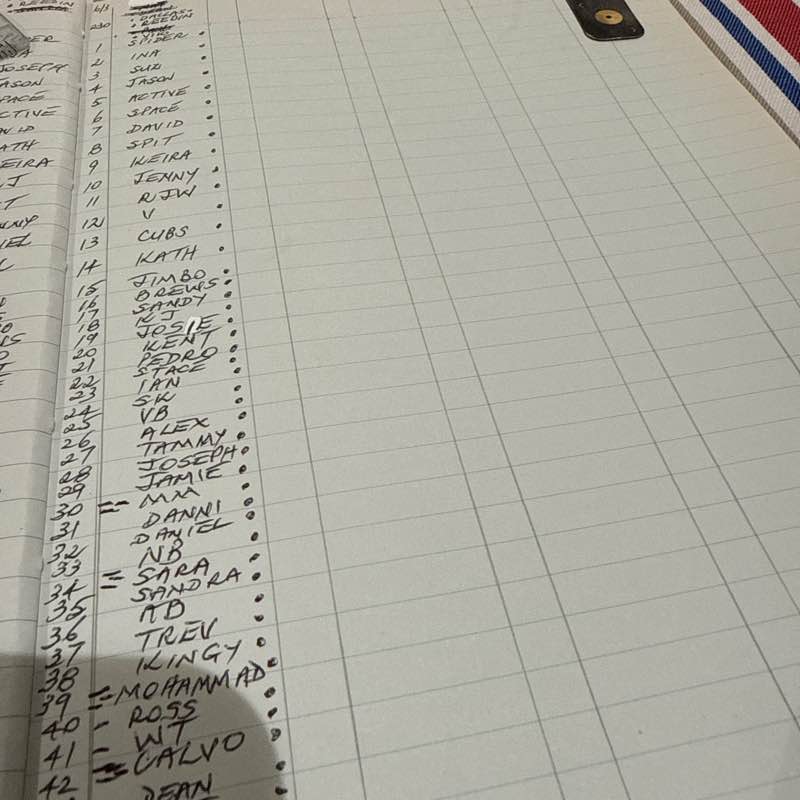 • REEDIN
JOSEPH
ASON
PACE
CTIVE
AVID
ATH
EIRA
J
T
NNY
IEL
6/3
• DALLAS •
230 • REEDIN
1 SPIDER •
2 INA •
3 SUZI •
4 JASON •
5 ACTIVE •
6 SPACE •
7 DAVID •
8 SPIT •
9 KEIRA •
10 JENNY •
11 RJW •
12 V •
13 CUBS •
14 KATH •
15 JIMBO •
16 BREWS •
17 SANDY •
18 KJ •
19 JOSIE •
20 KENT •
21 PEDRO •
22 STACE •
23 IAN •
24 SK •
25 VB •
26 ALEX •
27 TAMMY •
28 JOSEPH •
29 JAMIE •
30 = MM •
31 DANNI •
32 DANIEL •
33 NB •
34 = SARA •
35 SANDRA •
36 AB •
37 TREV •
38 KINGY •
39 = MOHAMMAD •
40 - ROSS •
41 - WT •
42 = CALVO •
DEAN •